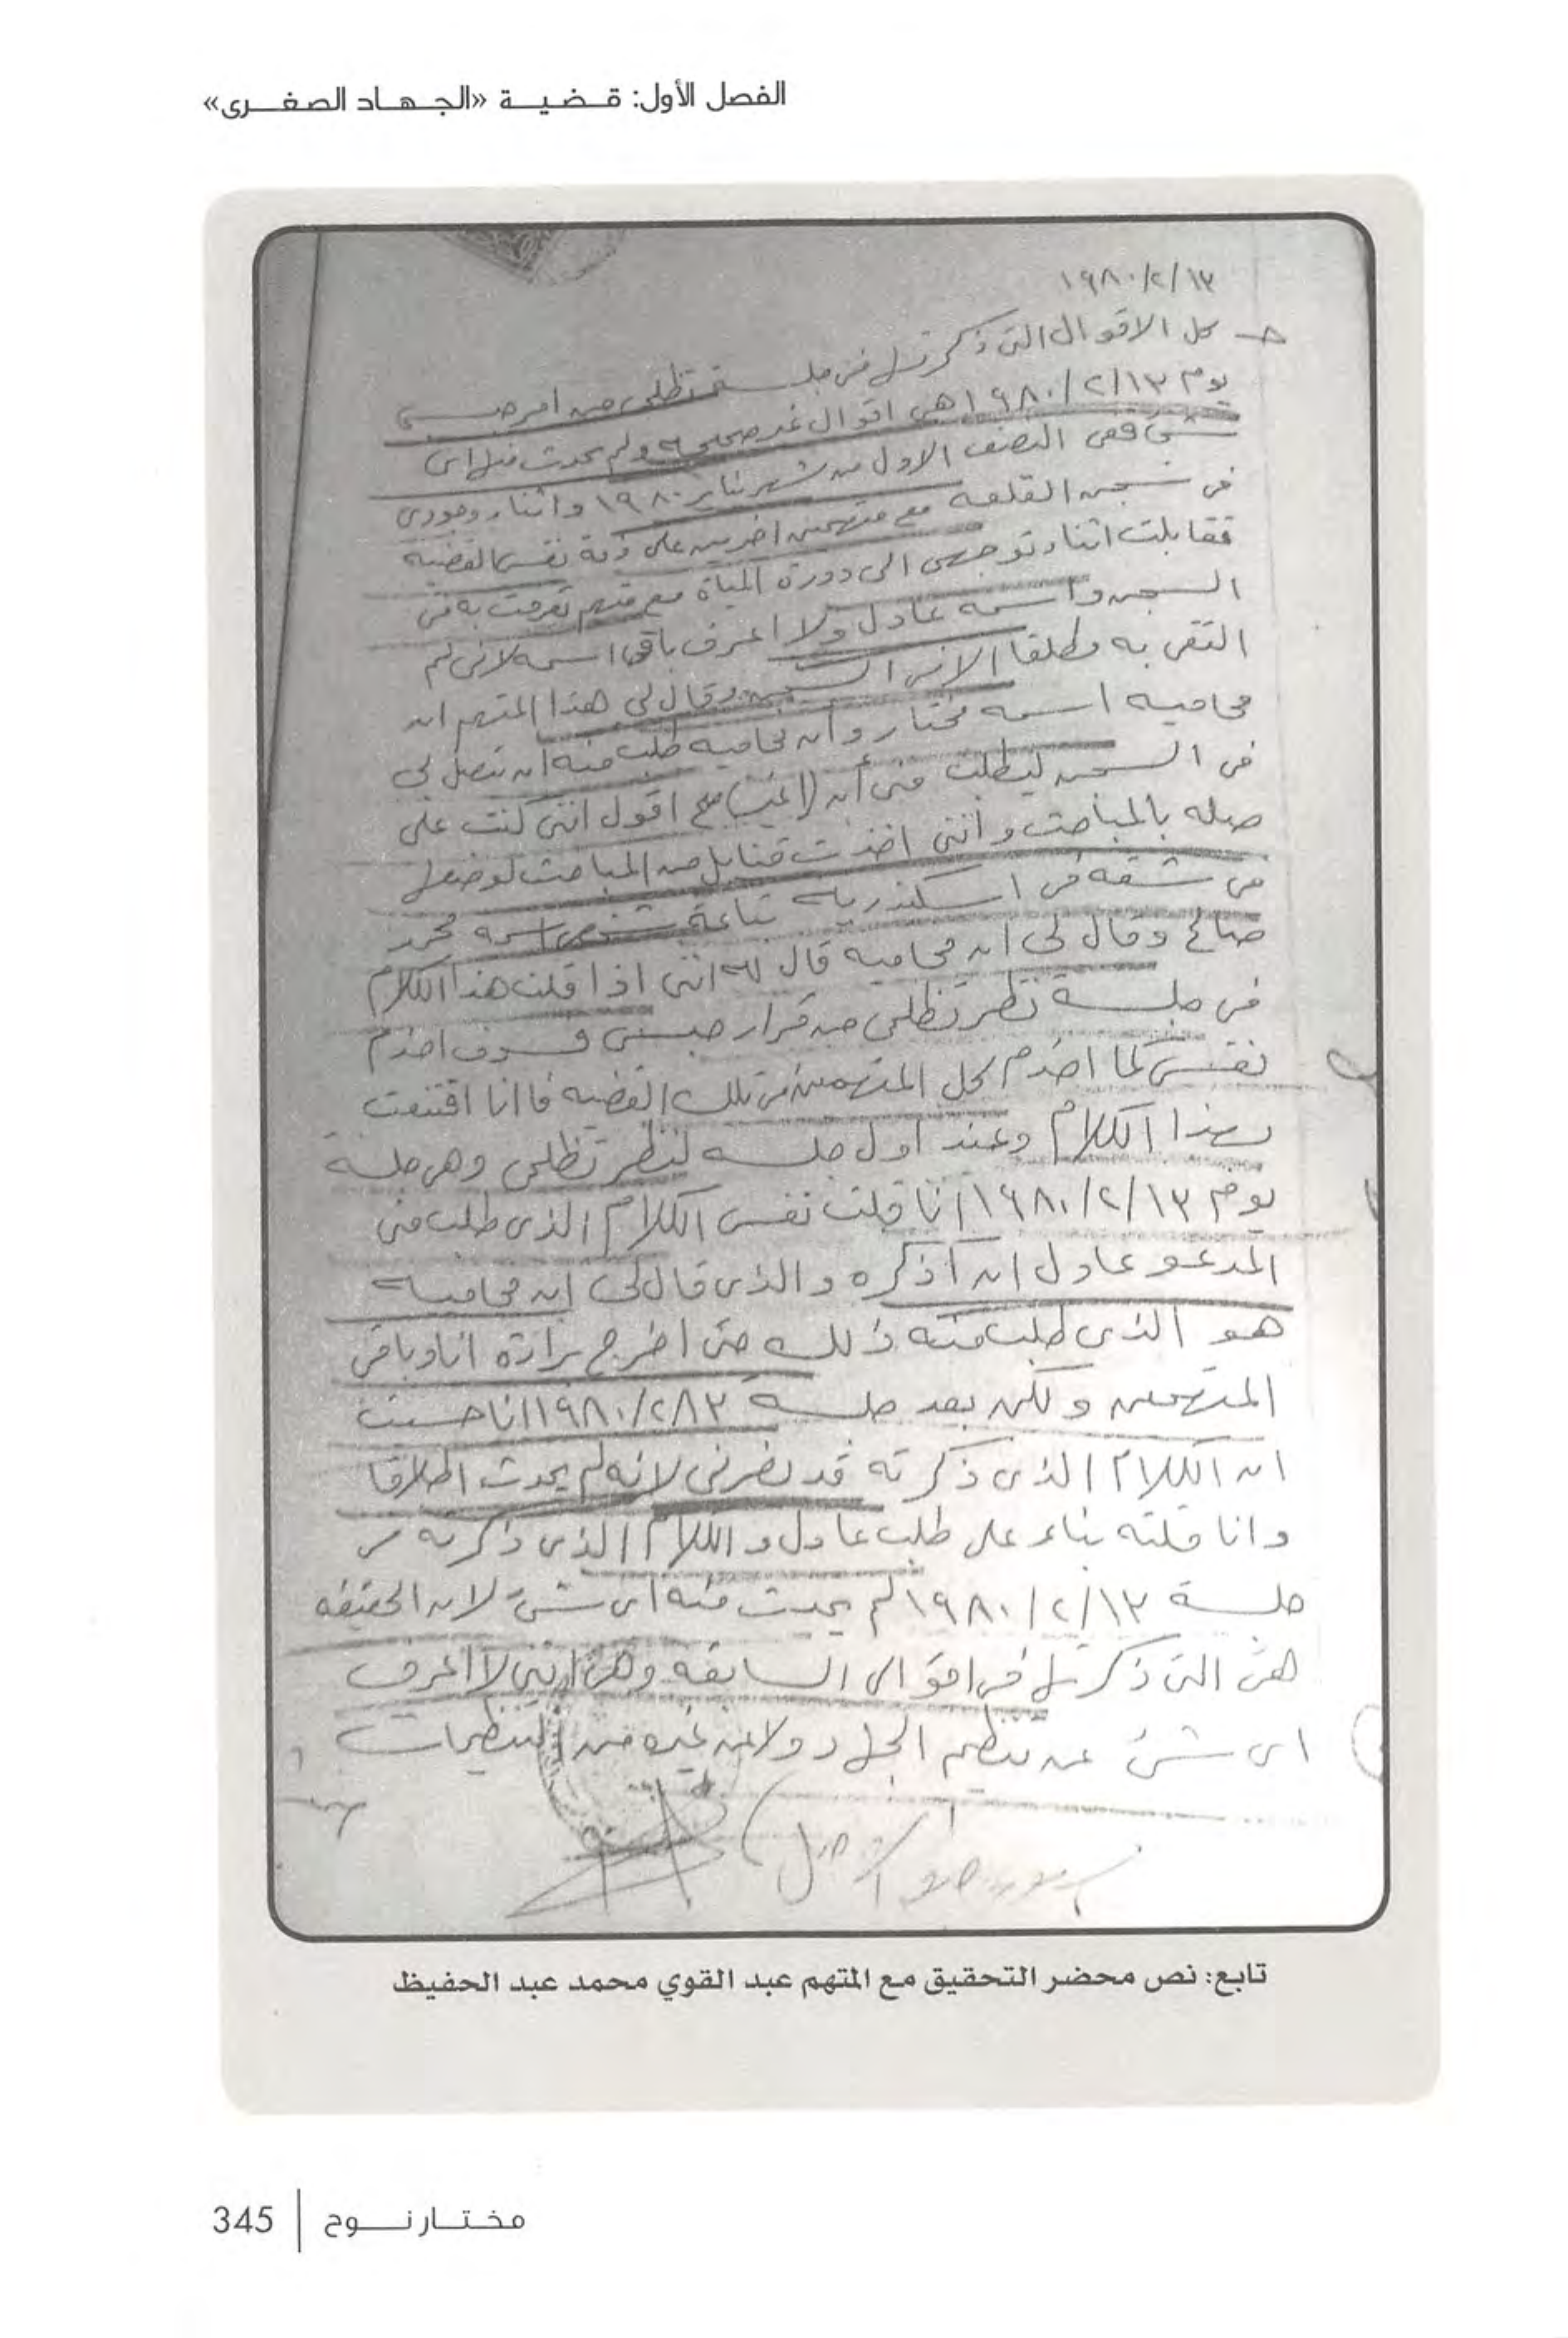 الفصل الأول: قضية «الجهاد الصغرى»
١٩٨٠/٢/١٣
ج كل الاقوال التى ذكرتها فى جلسة تظلمى من امر حبسى
يوم ١٩٨٠/٢/١٣ هى اقوال غير صحيحة ولم يحدث منها اى
شئ ففى النصف الاول من شهر يناير ١٩٨٠ واثناء وجودى
فى سجن القلعه مع متهمين اخرين على ذمة نفس القضيه
فقابلت اثناء توجهى الى دورة المياة مع متهم تعرفت به فى
السجن واسمه عادل ولا اعرف باقى اسمه لانى لم
التقى به مطلقا الا فى السجن وقال لى هذا المتهم ان
محاميه اسمه مختار وان محاميه طلب منه ان يتصل بى
فى السجن ليطلب منى أن اقول اننى كنت على
صله بالمباحث واننى اخذت قنابل من المباحث لوضعها
فى شقه فى اسكندريه بتاعة شخص اسمه محمد
صالح وقال لى ان محاميه قال له اننى اذا قلت هذا الكلام
فى جلسة نظر تظلمى من قرار حبسى فسوف اخدم
نفسى كما اخدم كل المتهمين فى تلك القضيه فانا اقتنعت
بهذا الكلام وعند اول جلسه لنظر تظلمى وهى جلسة
يوم ١٩٨٠/٢/١٣ أنا قلت نفس الكلام الذى طلب منى
المدعو عادل ان أذكره والذى قال لى ان محاميه
هو الذى طلب منه ذلك حتى اخرج براءة انا وباقى
المتهمين ولكن بعد جلسة ١٩٨٠/٢/١٣ انا حسيت
ان الكلام الذى ذكرته قد يضرنى لانه لم يحدث اطلاقا
وانا قلته بناء على طلب عادل والكلام الذى ذكرته
جلسة ١٩٨٠/٢/١٣ لم يحدث منه اى شئ لان الحقيقه
هى التى ذكرتها فى اقوالى السابقه وهى اننى لا اعرف
اى شئ عن تنظيم الجهاد ولا عن غيره من التنظيمات
تابع: نص محضر التحقيق مع المتهم عبد القوي محمد عبد الحفيظ
مختار نوح | 345